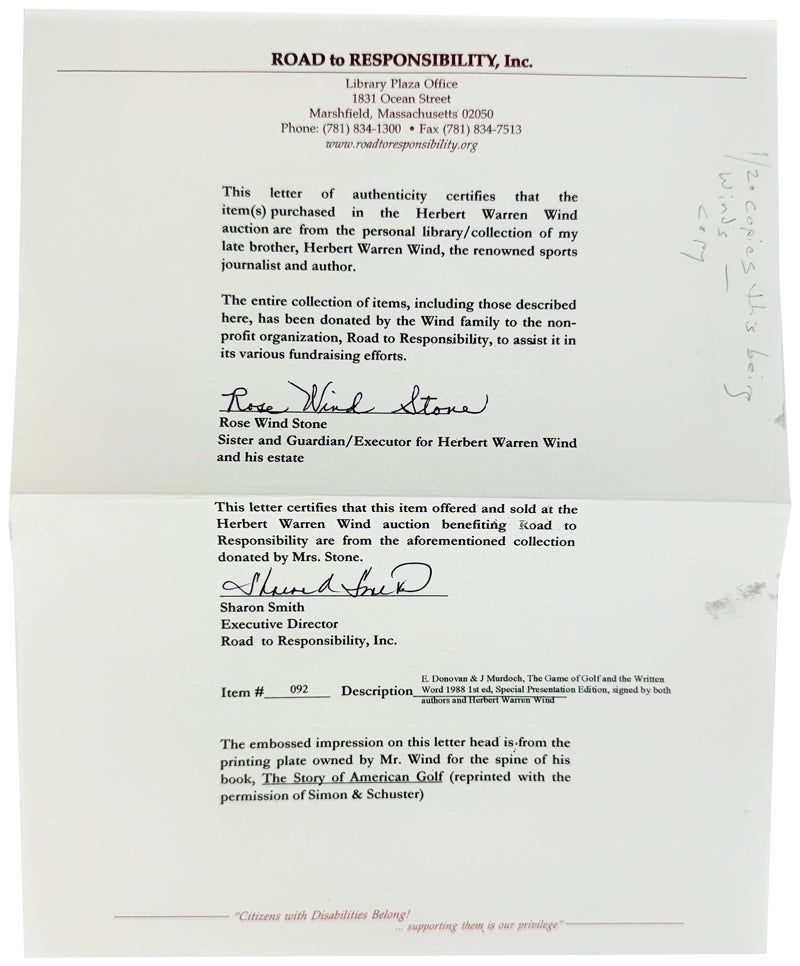 ROAD to RESPONSIBILITY, Inc.
Library Plaza Office
1831 Ocean Street
Marshfield, Massachusetts 02050
Phone: (781) 834-1300 • Fax (781) 834-7513
www.roadtoresponsibility.org
This letter of authenticity certifies that the
item(s) purchased in the Herbert Warren Wind
auction are from the personal library/collection of my
late brother, Herbert Warren Wind, the renowned sports
journalist and author.
The entire collection of items, including those described
here, has been donated by the Wind family to the non-
profit organization, Road to Responsibility, to assist it in
its various fundraising efforts.
Rose Wind Stone
Rose Wind Stone
Sister and Guardian/Executor for Herbert Warren Wind
and his estate
This letter certifies that this item offered and sold at the
Herbert Warren Wind auction benefiting Road to
Responsibility are from the aforementioned collection
donated by Mrs. Stone.
Sharon Smith
Sharon Smith
Executive Director
Road to Responsibility, Inc.
Item # 092 Description E. Donovan & J Murdoch, The Game of Golf and the Written
Word 1988 1st ed, Special Presentation Edition, signed by both
authors and Herbert Warren Wind
The embossed impression on this letter head is from the
printing plate owned by Mr. Wind for the spine of his
book, The Story of American Golf (reprinted with the
permission of Simon & Schuster)
"Citizens with Disabilities Belong!
... supporting them is our privilege"
1/20 copies this being
Wind's
copy